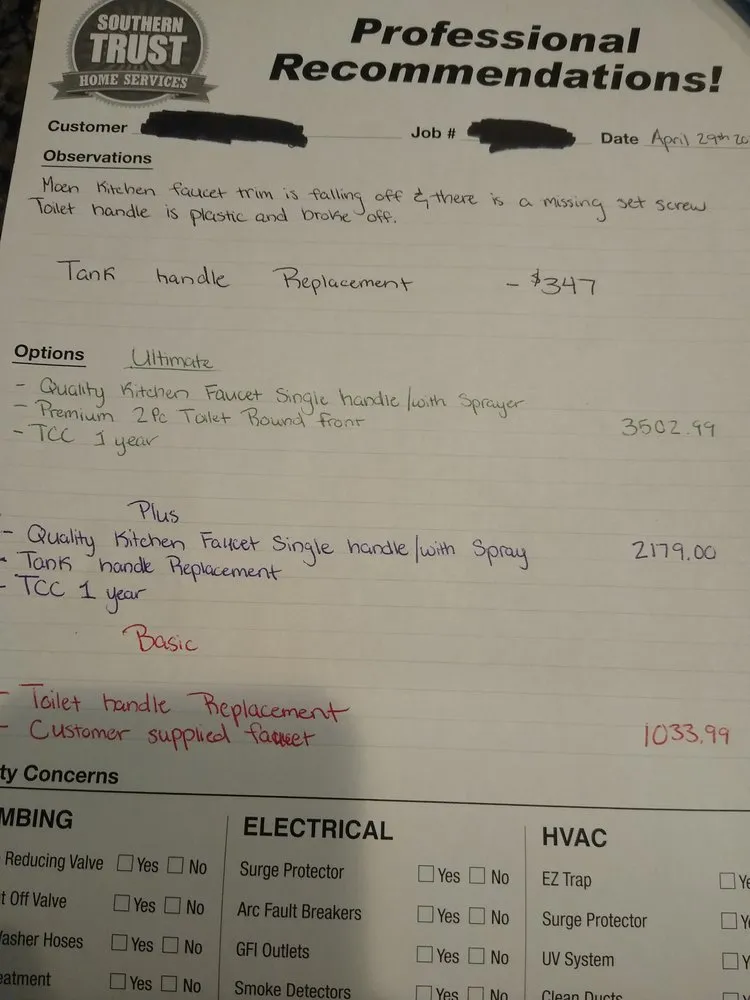 SOUTHERN
TRUST
HOME SERVICES
Professional
Recommendations!
Customer Job # Date April 29th 20
Observations
Moen Kitchen faucet trim is falling off & there is a missing set screw
Toilet handle is plastic and broke off.
Tank handle Replacement - $347
Options Ultimate
- Quality Kitchen Faucet Single handle/with Sprayer
- Premium 2Pc Toilet Round front 3502.99
- TCC 1 year
Plus
- Quality Kitchen Faucet Single handle/with Spray 2179.00
- Tank handle Replacement
- TCC 1 year
Basic
- Toilet handle Replacement
- Customer supplied faucet 1033.99
ty Concerns
MBING ELECTRICAL HVAC
Reducing Valve Yes No Surge Protector Yes No EZ Trap Ye
t Off Valve Yes No Arc Fault Breakers Yes No Surge Protector Y
asher Hoses Yes No GFI Outlets Yes No UV System Y
eatment Yes No Smoke Detectors Yes No Clean Ducts